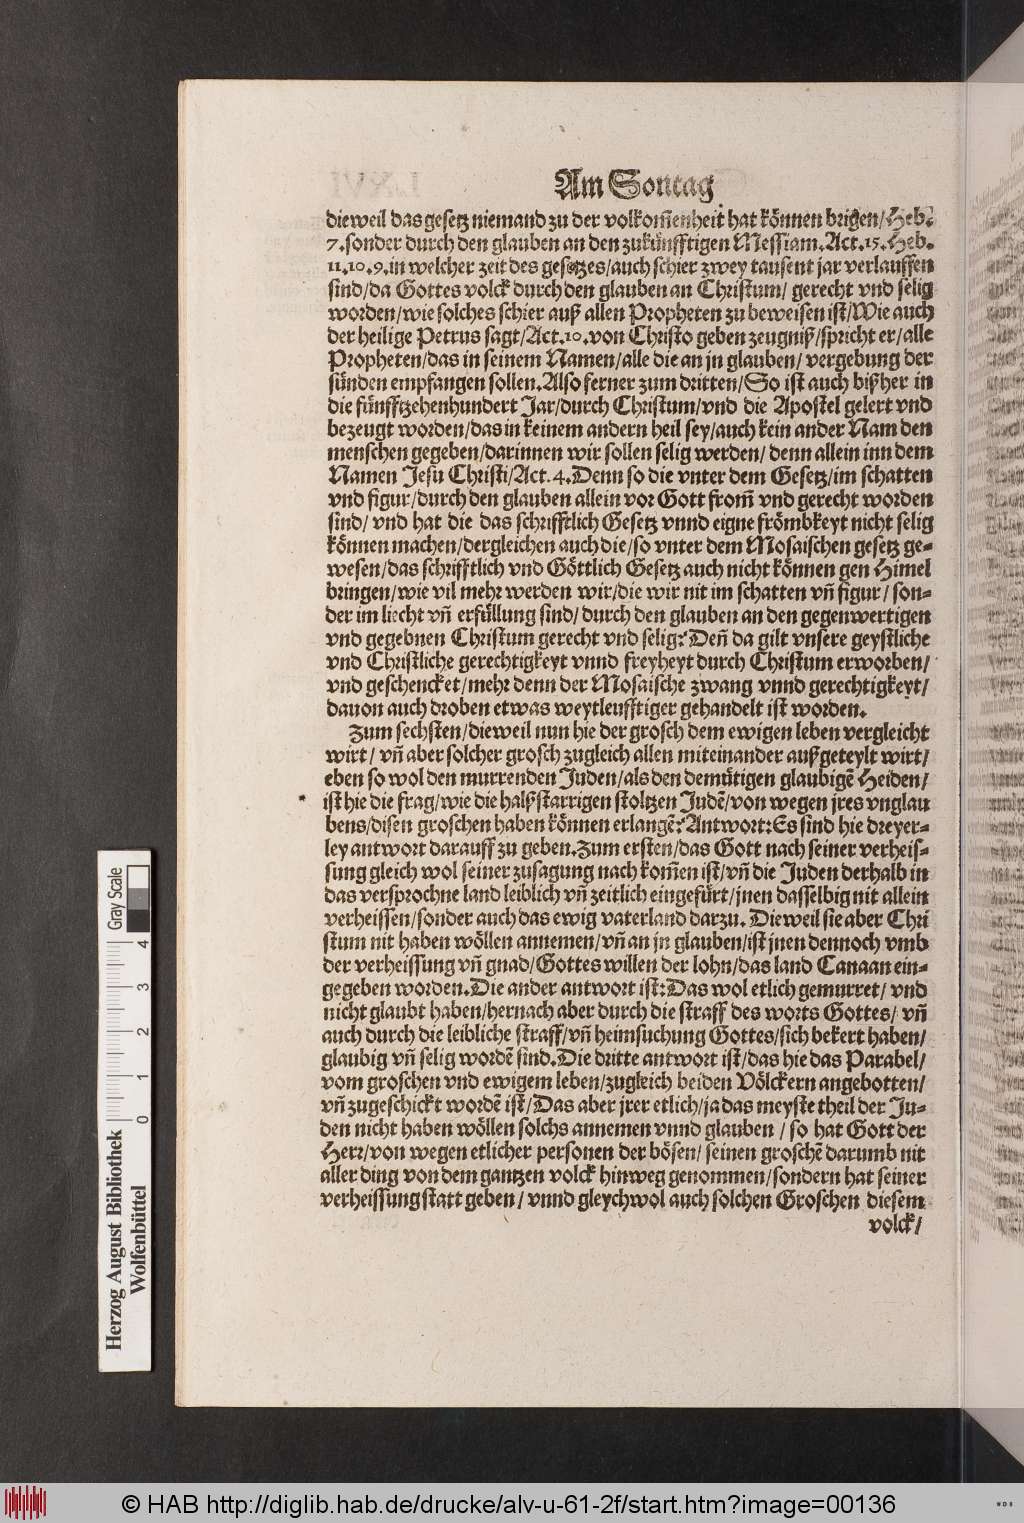 Am Sontag
dieweil das gesetz niemand zu der volkom̃enheit hat können brigen/Heb.
7.sonder durch den glauben an den zukünfftigen Messiam.Act.15.Heb.
11.10.9.in welcher zeit des gesetzes/auch schier zwey tausent jar verlauffen
sind/da Gottes volck durch den glauben an Christum/ gerecht vnd selig
worden/wie solches schier auß allen Propheten zu beweisen ist/Wie auch
der heilige Petrus sagt/Act.10.von Christo geben zeugniß/spricht er/alle
Propheten/das in seinem Namen/alle die an jn glauben/ vergebung der
sünden empfangen sollen.Also ferner zum dritten/So ist auch bißher in
die fünfftzehenhundert Jar/durch Christum/vnd die Apostel gelert vnd
bezeugt worden/das in keinem andern heil sey/auch kein ander Nam den
menschen gegeben/darinnen wir sollen selig werden/ denn allein inn dem
Namen Jesu Christi/Act.4.Denn so die vnter dem Gesetz/im schatten
vnd figur/durch den glauben allein vor Gott from̃ vnd gerecht worden
sind/ vnd hat die das schrifftlich Gesetz vnnd eigne frömbkeyt nicht selig
können machen/dergleichen auch die/so vnter dem Mosaischen gesetz ge-
wesen/das schrifftlich vnd Göttlich Gesetz auch nicht können gen Himel
bringen/wie vil mehr werden wir/die wir nit im schatten vñ figur/ son-
der im liecht vñ erfüllung sind/ durch den glauben an den gegenwertigen
vnd gegebnen Christum gerecht vnd selig? Deñ da gilt vnsere geystliche
vnd Christliche gerechtigkeyt vnnd freyheyt durch Christum erworben/
vnd geschencket/mehr denn der Mosaische zwang vnnd gerechtigkeyt/
dauon auch droben etwas weytleufftiger gehandelt ist worden.
Zum sechsten/dieweil nun hie der grosch dem ewigen leben vergleicht
wirt/ vñ aber solcher grosch zugleich allen miteinander außgeteylt wirt/
eben so wol den murrenden Juden/als den demütigen glaubigẽ Heiden/
ist hie die frag/wie die halßstarrigen stoltzen Judẽ/von wegen jres vnglau
bens/disen groschen haben können erlangẽ? Antwort:Es sind hie dreyer-
ley antwort darauff zu geben.Zum ersten/das Gott nach seiner verheis-
sung gleich wol seiner zusagung nach kom̃en ist/vñ die Juden derhalb in
das versprochne land leiblich vñ zeitlich eingefürt/jnen dasselbig nit allein
verheissen/sonder auch das ewig vaterland darzu. Dieweil sie aber Chri
stum nit haben wöllen annemen/vñ an jn glauben/ist jnen dennoch vmb
der verheissung vñ gnad/Gottes willen der lohn/das land Canaan ein-
gegeben worden.Die ander antwort ist:Das wol etlich gemurret/ vnd
nicht glaubt haben/hernach aber durch die straff des worts Gottes/ vñ
auch durch die leibliche straff/vñ heimsuchung Gottes/sich bekert haben/
glaubig vñ selig wordẽ sind.Die dritte antwort ist/das hie das Parabel/
vom groschen vnd ewigem leben/zugleich beiden Völckern angebotten/
vñ zugeschickt wordẽ ist/Das aber jrer etlich/ja das meyste theil der Ju-
den nicht haben wöllen solchs annemen vnnd glauben / so hat Gott der
Herr/von wegen etlicher personen der bösen/ seinen groschẽ darumb nit
aller ding von dem gantzen volck hinweg genommen/sondern hat seiner
verheissung statt geben/ vnnd gleychwol auch solchen Groschen diesem
volck/
Herzog August Bibliothek
Wolfenbüttel
0 1 2 3 4
Gray Scale
© HAB http://diglib.hab.de/drucke/alv-u-61-2f/start.htm?image=00136
WDB